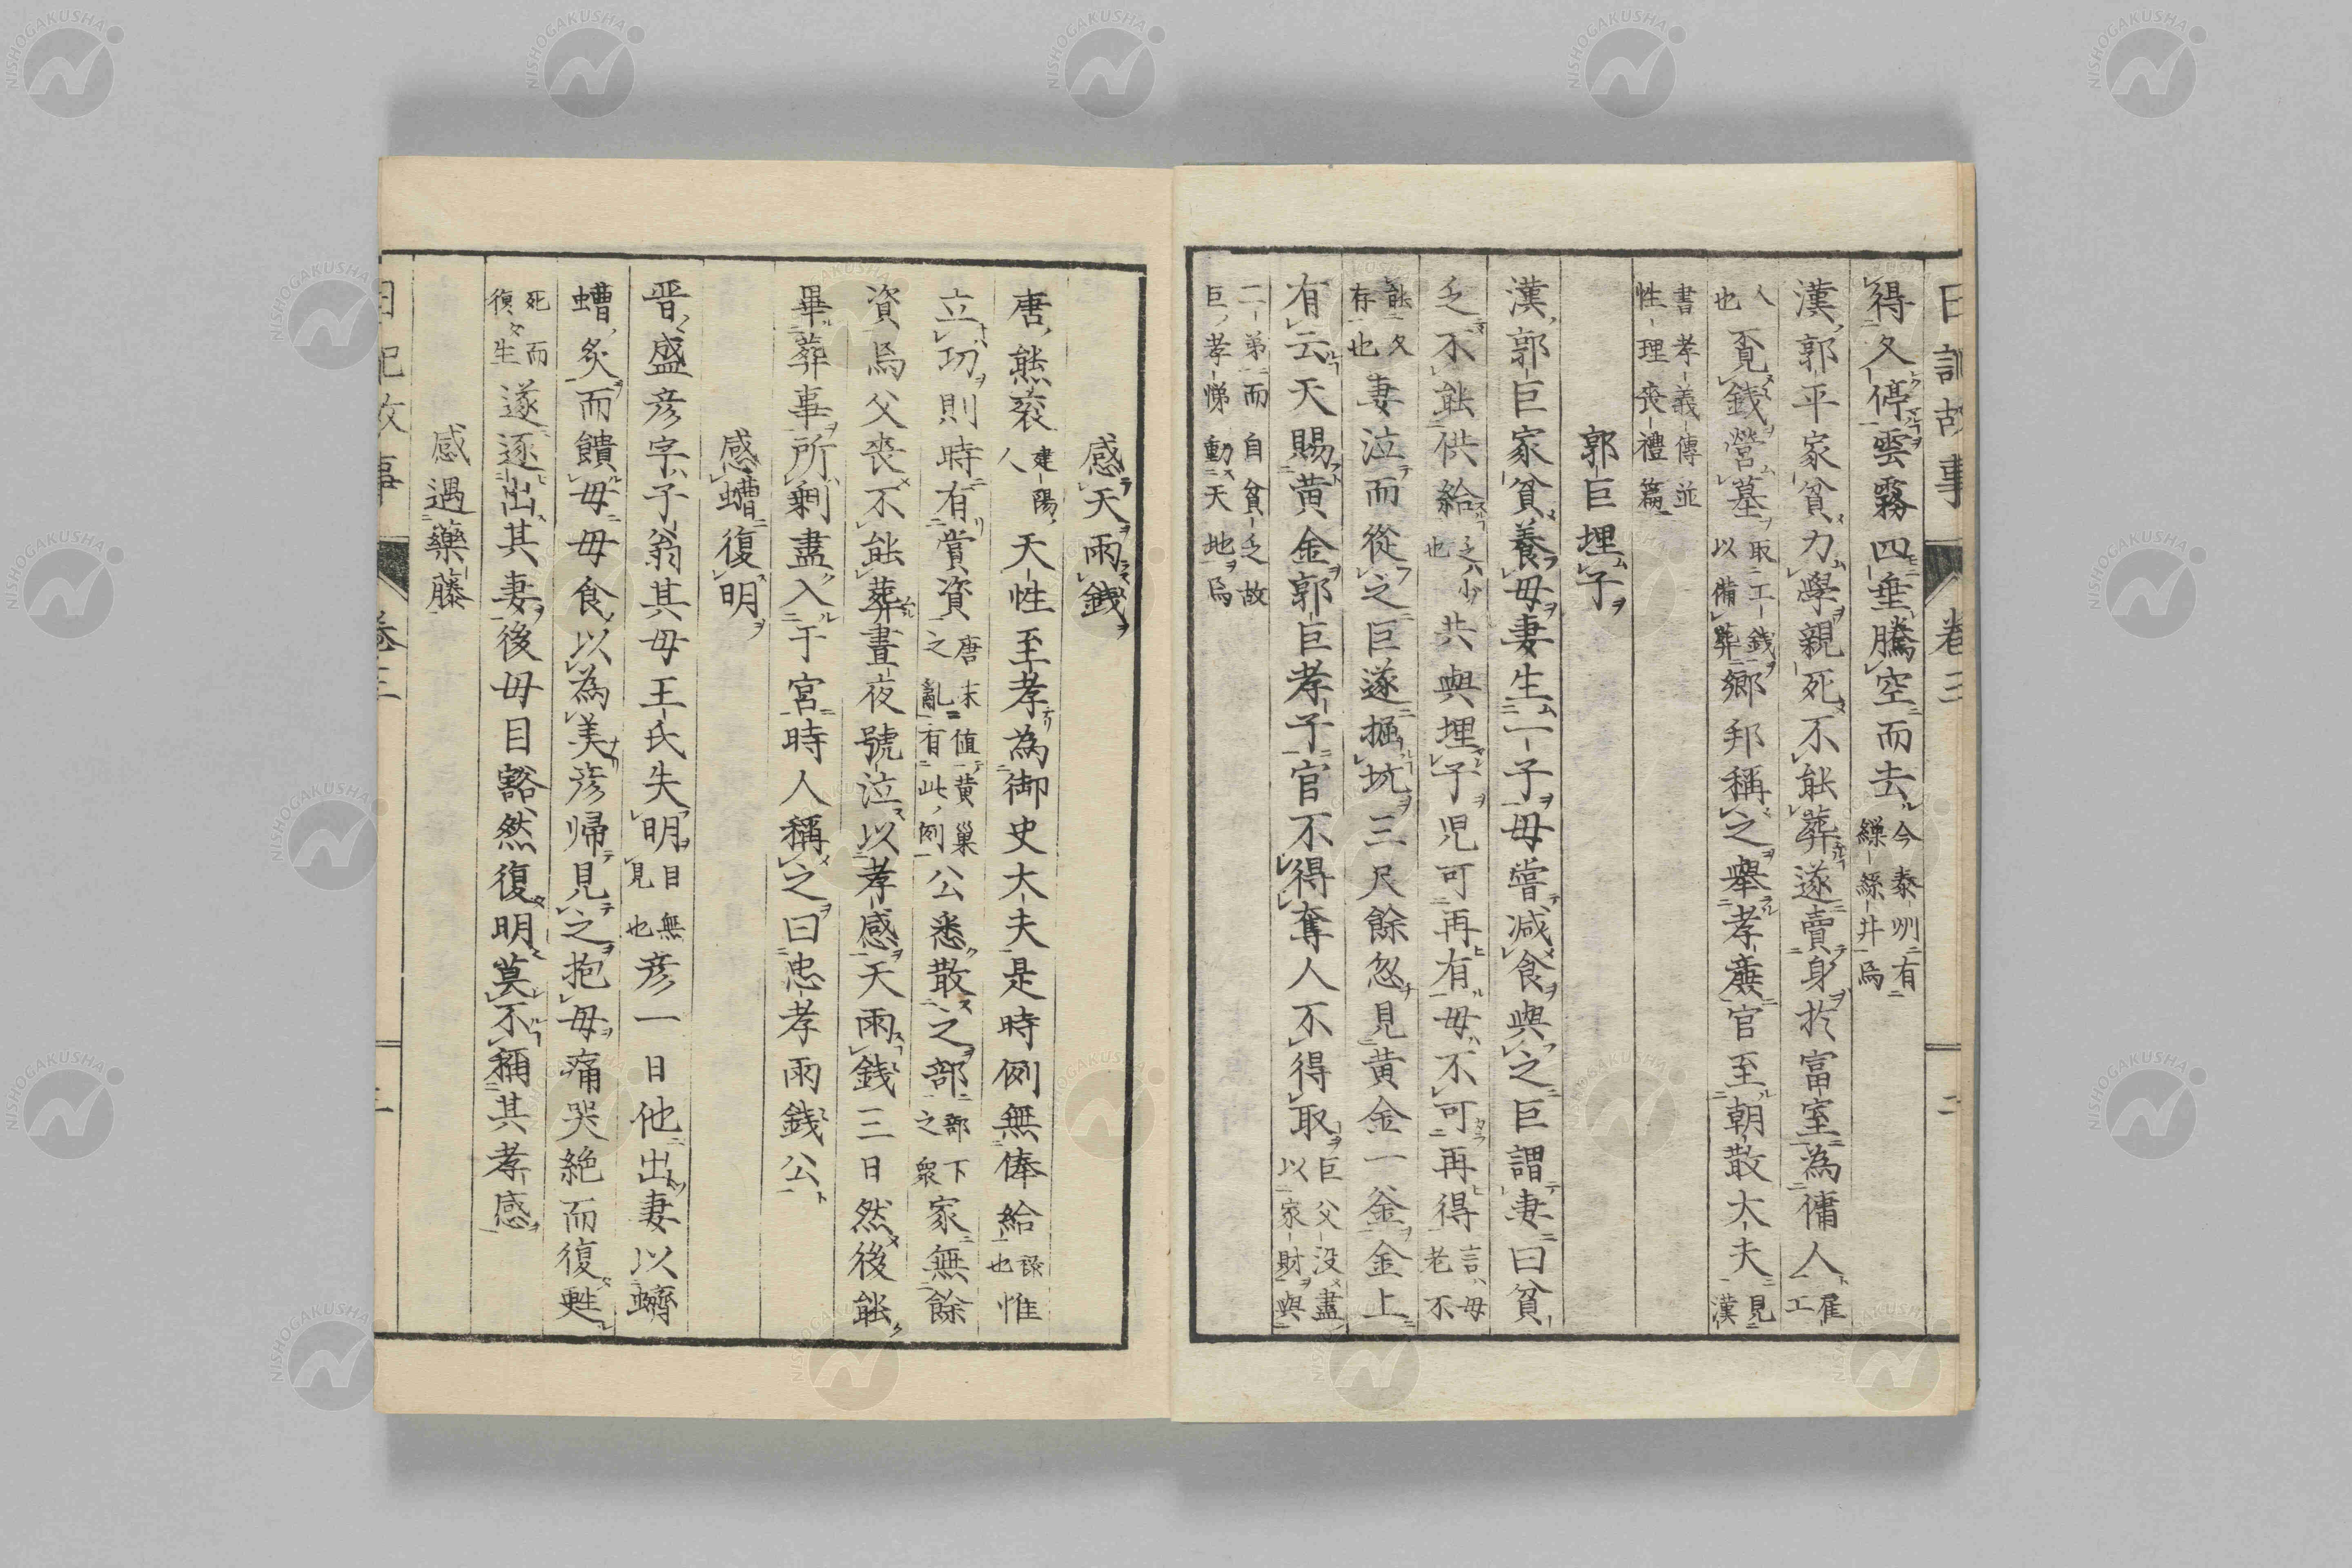 日記故事 卷三 二
得久停雲霧四垂騰空而去今泰州有繰絲井焉
漢郭平家貧力學親死不能葬遂賣身於富室為傭人雇工
人也覔錢營墓取工錢以備葬鄉邦稱之舉孝廉官至朝散大夫見漢
書孝義傳並性理喪禮篇
郭巨埋子
漢郭巨家貧養母妻生一子母嘗減食與之巨謂妻曰貧
乏不能供給乏小也共與埋子児可再有母不可再得言母老不
能久存也妻泣而從之巨遂掘坑三尺餘忽見黄金一釜金上
有云天賜黄金郭巨孝子官不得奪人不得取巨父没盡以家財與
二弟而自貧乏故巨孝悌動天地焉
感天雨錢
唐熊衮建陽人天性至孝為御史大夫是時例無俸給祿也惟
立功則時有賞資唐末值黄巢之亂有此例公悉散之部部下之衆家無餘
資焉父喪不能葬晝夜號泣以孝感天雨錢三日然後能
畢葬事所剩盡入于宮時人稱之曰忠孝雨錢公
感螬復明
晋盛彦字子翁其母王氏失明目無見也彦一日他出妻以蠐
螬炙而饋母母食以為美彦帰見之抱母痛哭絶而復甦
死而復生遂逐出其妻後母目豁然復明莫不稱其孝感
感遇藥藤
日記故事 卷三